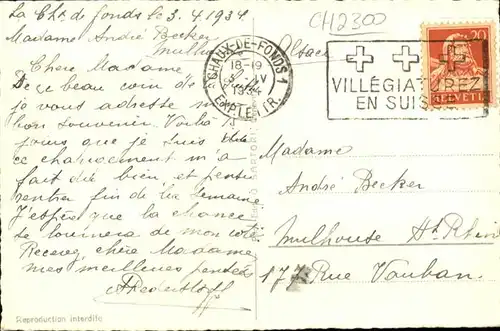 La Cht de fonds le 3.4.1934
Madame André Becker
Mulh
Chère Madame
De ce beau coin de
je vous adresse
bon souvenir. Voilà
jours que je suis
ce changement m'a
fait du bien et
rentrer fin de la Semaine
J'espère que la chance
se tournera de mon côté
Recevez chère Madame
mes meilleures pensées
Reproduction interdite
CH2300
Alsace
CHAUX-DE-FONDS 1
18-19
IV
1934
EXP. LETTR.
VILLÉGIATUREZ
EN SUISSE
20
HELVETIA
Madame
André Becker
Mulhouse Ht Rhin
177 Rue Vauban